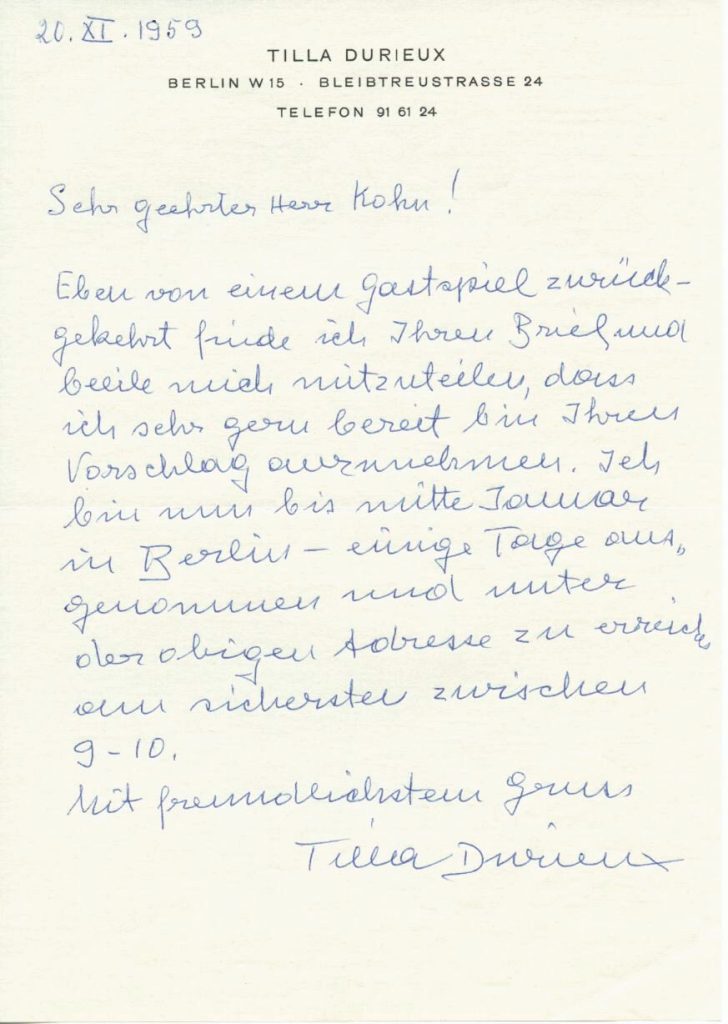 20. XI. 1959
TILLA DURIEUX
BERLIN W 15 · BLEIBTREUSTRASSE 24
TELEFON 91 61 24
Sehr geehrter Herr Kohn!
Eben von einem Gastspiel zurück-
gekehrt finde ich Ihren Brief und
beeile mich mitzuteilen, dass
ich sehr gern bereit bin Ihren
Vorschlag anzunehmen. Ich
bin nun bis mitte Januar
in Berlin – einige Tage aus„
genommen und unter
der obigen Adresse zu erreich
am sichersten zwischen
9-10.
Mit freundlichstem Gruss
Tilla Durieux